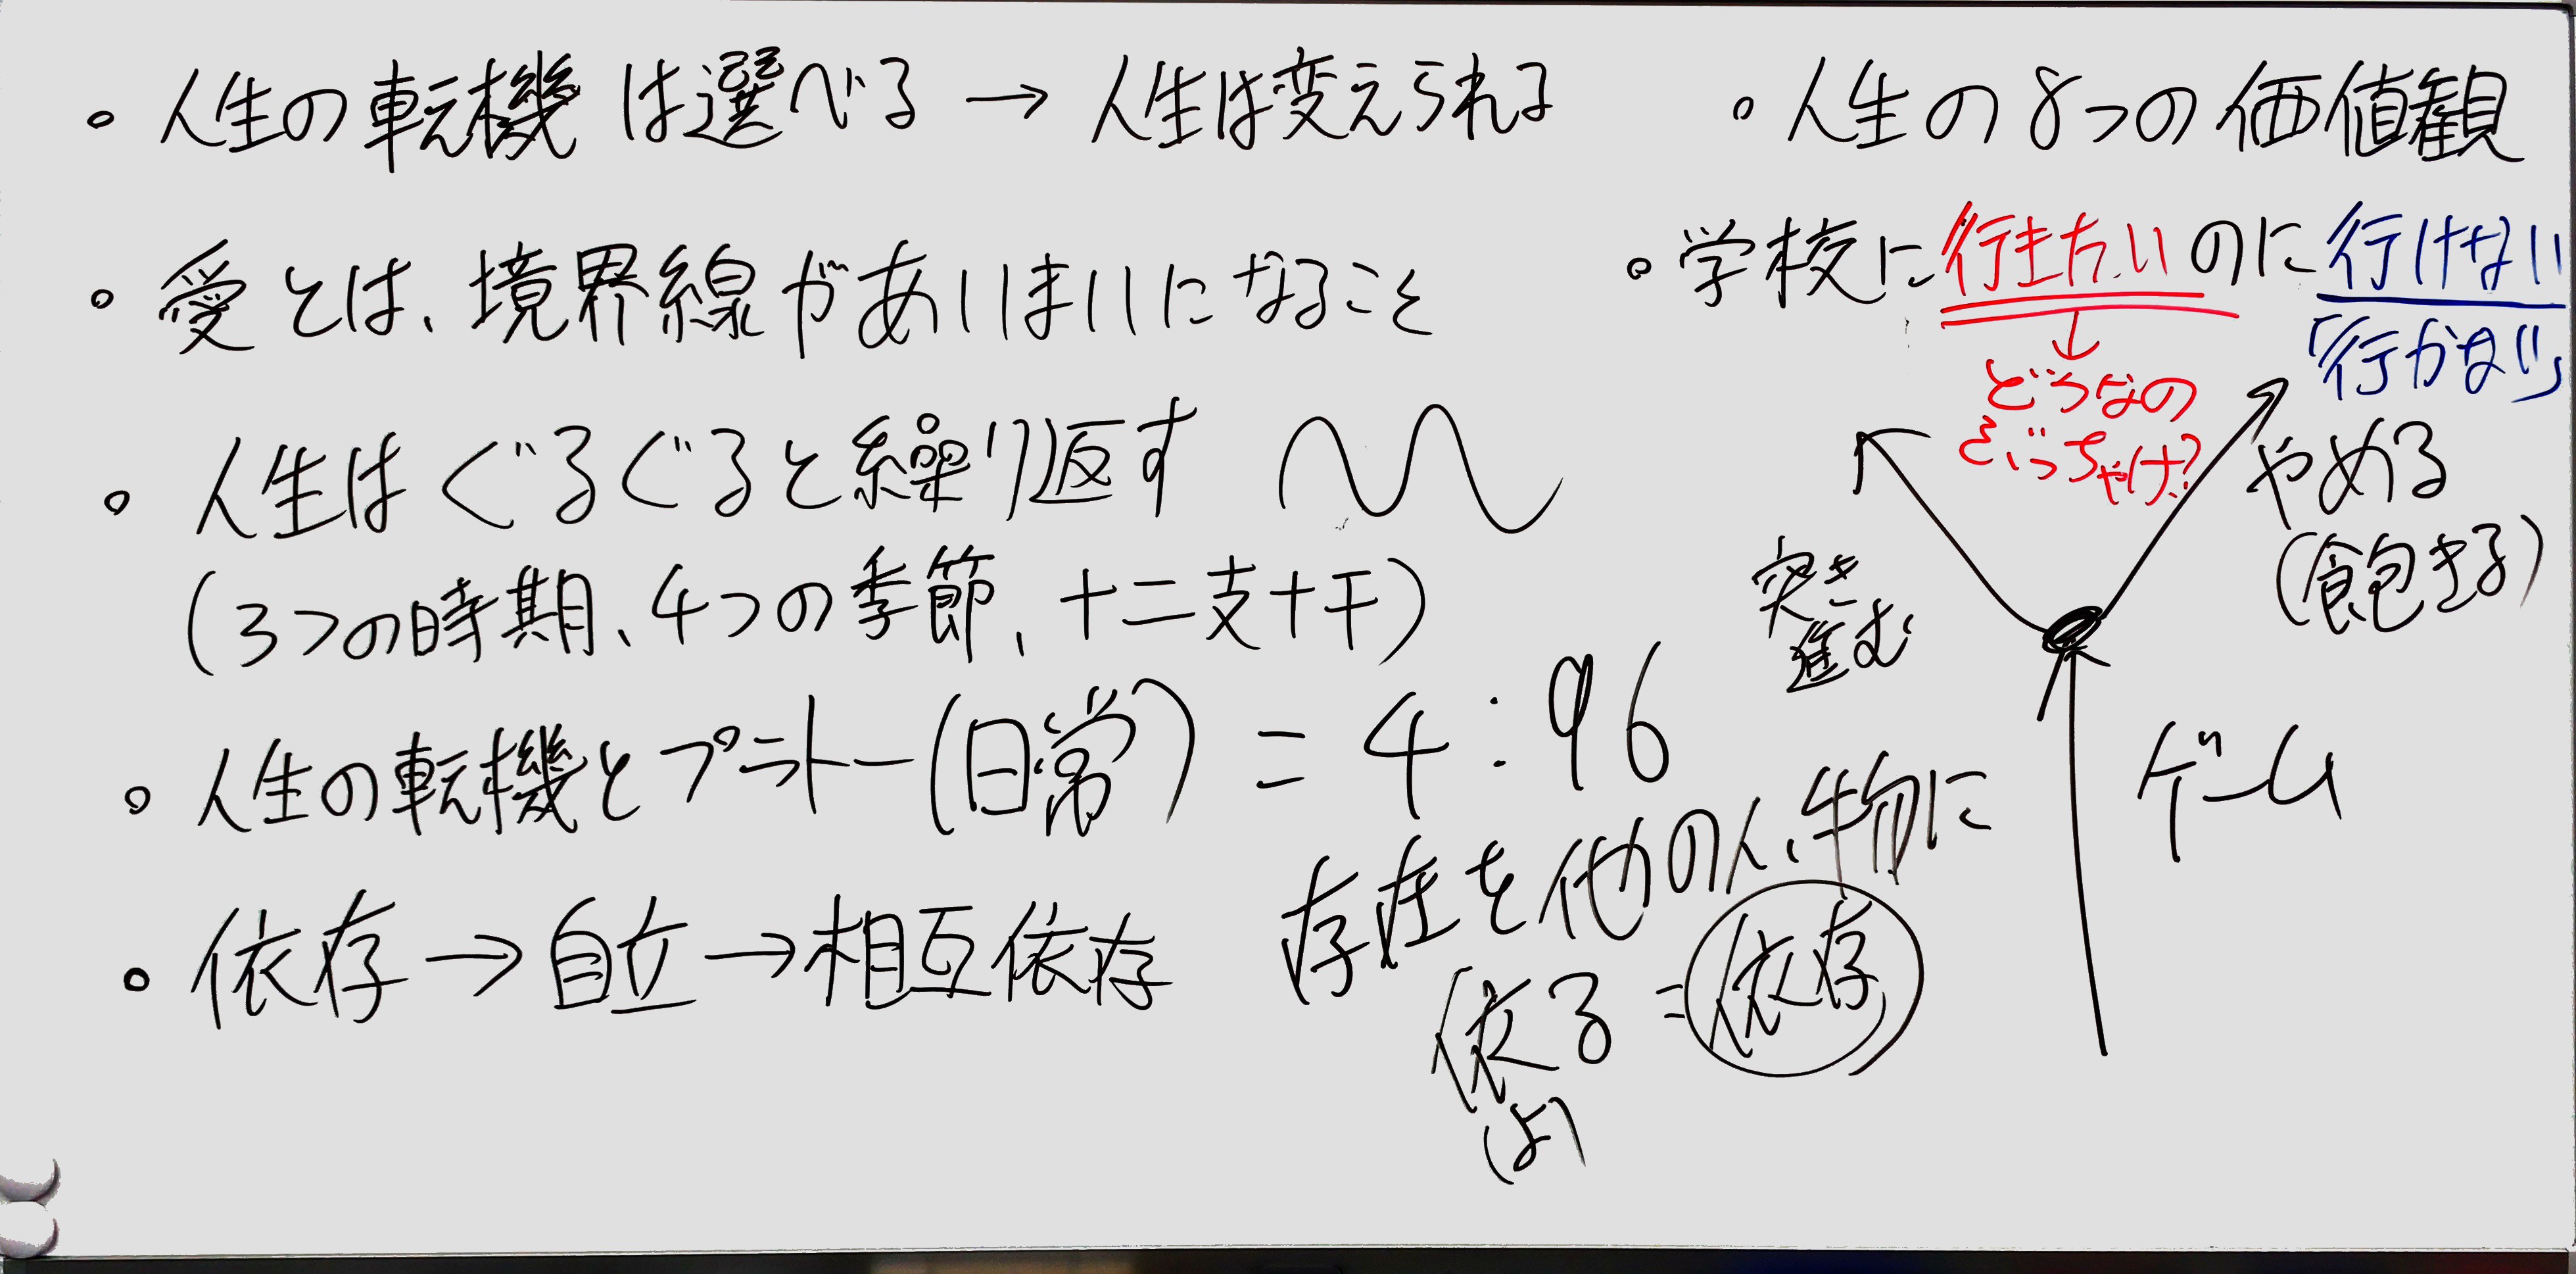 。人生の転機は選べる → 人生は変えられる
。愛とは、境界線があいまいになること
。人生はぐるぐると繰り返す
(3つの時期、4つの季節、十二支十干)
。人生の転機とプラトー(日常) = 4:96
。依存→自立→相互依存
存在を他の人、物に
依る=依存
(よ)
。人生の8つの価値観
。学校に行きたいのに行けない
「行かない」
↓
どうなの
ぶっちゃけ?
やめる
(飽きる)
突き
進む
ゲーム